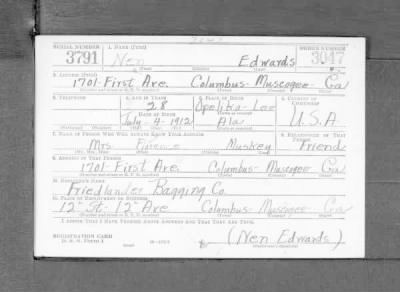 SERIAL NUMBER 1. NAME (Print) ORDER NUMBER
3791 Nen Edwards 3047
(First) (Middle) (Last)
2. ADDRESS (Print)
1701-First Ave. Columbus-Muscogee-Ga
3. TELEPHONE 4. AGE IN YEARS 5. PLACE OF BIRTH 6. COUNTRY OF CITIZENSHIP
28 Opelika-Lee
DATE OF BIRTH
July-4-1912 Ala. U.S.A.
7. NAME OF PERSON WHO WILL ALWAYS KNOW YOUR ADDRESS 8. RELATIONSHIP OF THAT PERSON
Mrs. Florence Muskey Friend
(Mr., Mrs., Miss) (First) (Middle) (Last)
9. ADDRESS OF THAT PERSON
1701-First Ave. Columbus-Muscogee Ga
10. EMPLOYER'S NAME
Friedlander Bagging Co.
11. PLACE OF EMPLOYMENT OR BUSINESS
12th St. 12th Ave Columbus-Muscogee-Ga
I AFFIRM THAT I HAVE VERIFIED ABOVE ANSWERS AND THAT THEY ARE TRUE.
REGISTRATION CARD
D. S. S. Form 1 (Nen Edwards)